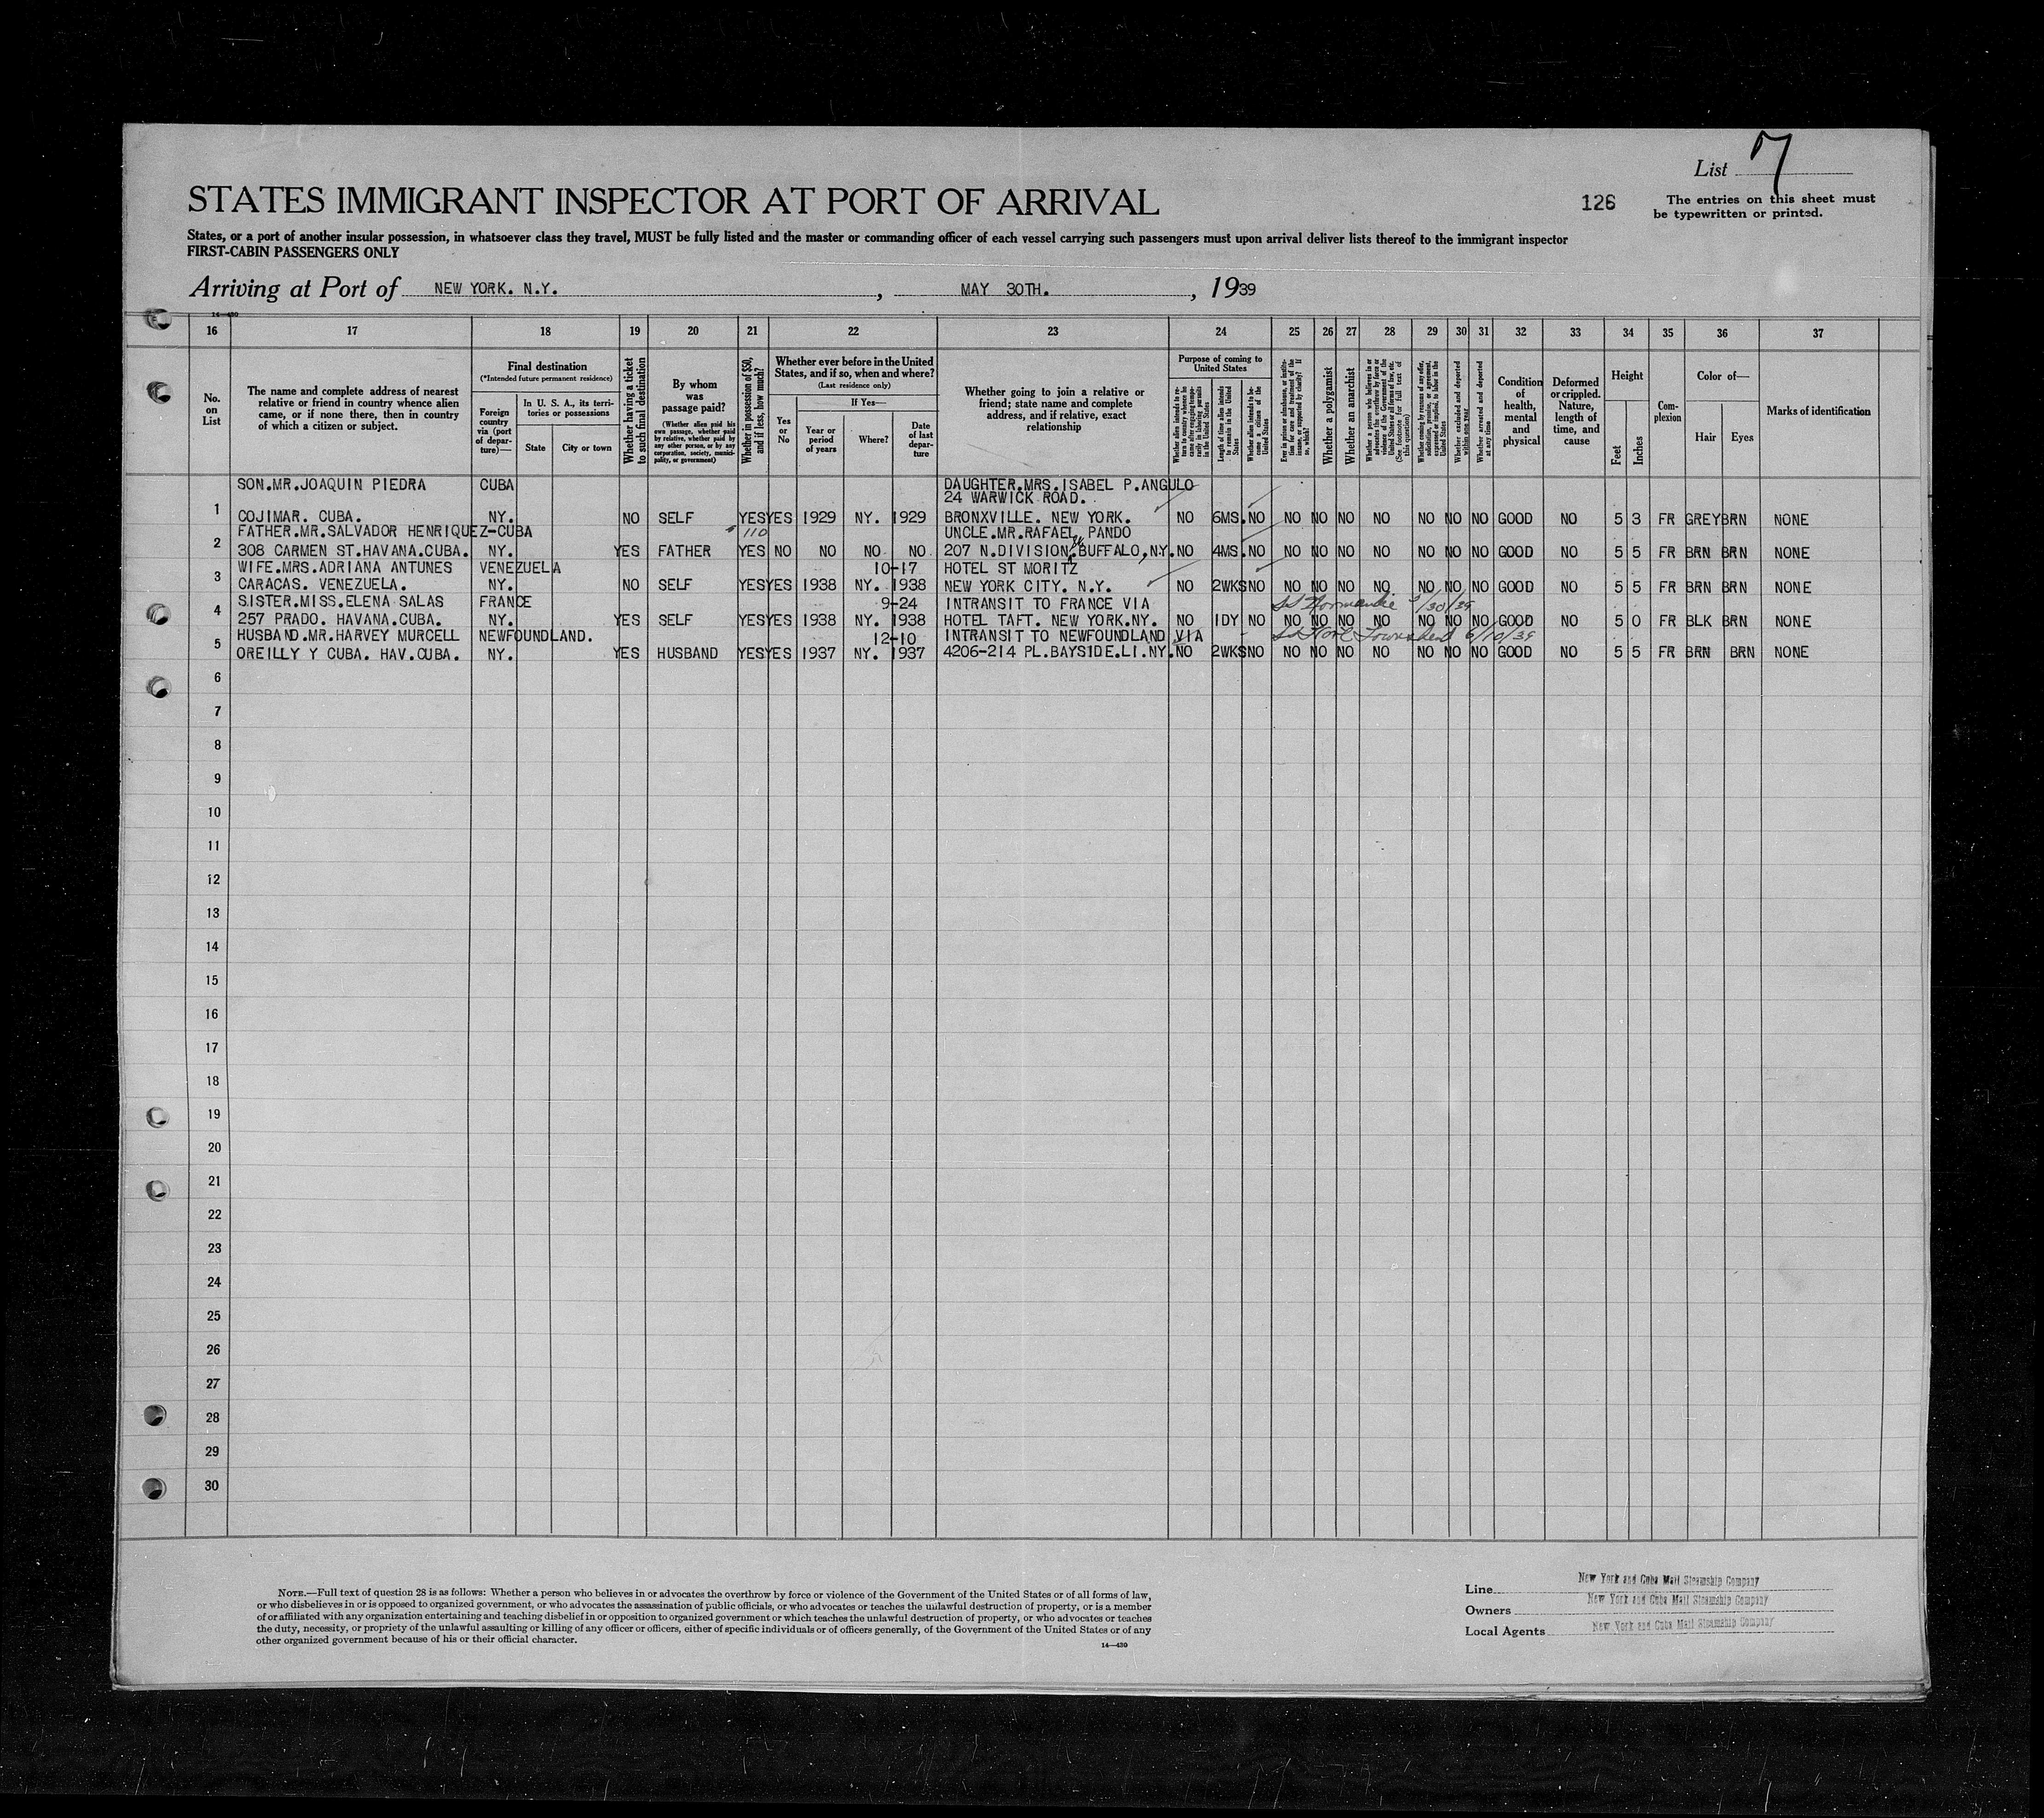 List 7
STATES IMMIGRANT INSPECTOR AT PORT OF ARRIVAL
126
The entries on this sheet must
be typewritten or printed.
States, or a port of another insular possession, in whatsoever class they travel, MUST be fully listed and the master or commanding officer of each vessel carrying such passengers must upon arrival deliver lists thereof to the immigrant inspector
FIRST-CABIN PASSENGERS ONLY
Arriving at Port of NEW YORK. N.Y. , MAY 30TH. , 1939
14—430
16 17 18 19 20 21 22 23 24 25 26 27 28 29 30 31 32 33 34 35 36 37
No.
on
List
The name and complete address of nearest
relative or friend in country whence alien
came, or if none there, then in country
of which a citizen or subject.
Final destination
(*Intended future permanent residence)
Foreign
country
via (port
of depar-
ture)—
In U. S. A., its terri-
tories or possessions
State
City or town
Whether having a ticket
to such final destination
By whom
was
passage paid?
(Whether alien paid his
own passage, whether paid
by relative, whether paid by
any other person, or by any
corporation, society, munici-
pality, or government)
Whether in possession of $50,
and if less, how much?
Whether ever before in the United
States, and if so, when and where?
(Last residence only)
Yes
or
No
If Yes—
Year or
period
of years
Where?
Date
of last
depar-
ture
Whether going to join a relative or
friend; state name and complete
address, and if relative, exact
relationship
Purpose of coming to
United States
Whether alien intends to re-
turn to country whence he
came after engaging tempo-
rarily in laboring pursuits
in the United States
Length of time alien intends
to remain in the United
States
Whether alien intends to be-
come a citizen of the
United States
Ever in prison or almshouse, or institu-
tion for care and treatment of the
insane, or supported by charity? If
so, which?
Whether a polygamist
Whether an anarchist
Whether a person who believes in or
advocates the overthrow by force or
violence of the Government of the
United States or all forms of law, etc.
(See footnote for full text of
this question)
Whether coming by reason of any offer,
solicitation, promise, or agreement,
expressed or implied, to labor in the
United States
Whether excluded and deported
within one year
Whether arrested and deported
at any time
Condition
of
health,
mental
and
physical
Deformed
or crippled.
Nature,
length of
time, and
cause
Height
Feet
Inches
Com-
plexion
Color of—
Hair
Eyes
Marks of identification
SON.MR.JOAQUIN PIEDRA CUBA DAUGHTER.MRS.ISABEL P.ANGULO
24 WARWICK ROAD.
1 COJIMAR. CUBA. NY. NO SELF YES YES 1929 NY. 1929 BRONXVILLE. NEW YORK. NO 6MS. NO NO NO NO NO NO NO NO GOOD NO 5 3 FR GREY BRN NONE
FATHER.MR.SALVADOR HENRIQUEZ-CUBA 110 UNCLE.MR.RAFAEL PANDO
2 308 CARMEN ST.HAVANA.CUBA. NY. YES FATHER YES NO NO NO NO 207 N.DIVISION St BUFFALO,N.Y. NO 4MS. NO NO NO NO NO NO NO NO GOOD NO 5 5 FR BRN BRN NONE
WIFE.MRS.ADRIANA ANTUNES VENEZUELA 10-17 HOTEL ST MORITZ
3 CARACAS. VENEZUELA. NY. NO SELF YES YES 1938 NY. 1938 NEW YORK CITY. N.Y. NO 2WKS NO NO NO NO NO NO NO NO GOOD NO 5 5 FR BRN BRN NONE
SISTER.MISS.ELENA SALAS FRANCE 9-24 INTRANSIT TO FRANCE VIA SS Normandie /30/39
4 257 PRADO. HAVANA.CUBA. NY. YES SELF YES YES 1938 NY. 1938 HOTEL TAFT. NEW YORK.NY. NO 1DY NO NO NO NO NO NO NO NO GOOD NO 5 0 FR BLK BRN NONE
HUSBAND.MR.HARVEY MURCELL NEWFOUNDLAND. 12-10 INTRANSIT TO NEWFOUNDLAND VIA SS Townshend 6/10/39
5 OREILLY Y CUBA. HAV.CUBA. NY. YES HUSBAND YES YES 1937 NY. 1937 4206-214 PL.BAYSIDE.LI.NY. NO 2WKS NO NO NO NO NO NO NO NO GOOD NO 5 5 FR BRN BRN NONE
6
7
8
9
10
11
12
13
14
15
16
17
18
19
20
21
22
23
24
25
26
27
28
29
30
NOTE.—Full text of question 28 is as follows: Whether a person who believes in or advocates the overthrow by force or violence of the Government of the United States or of all forms of law,
or who disbelieves in or is opposed to organized government, or who advocates the assassination of public officials, or who advocates or teaches the unlawful destruction of property, or is a member
of or affiliated with any organization entertaining and teaching disbelief in or opposition to organized government or which teaches the unlawful destruction of property, or who advocates or teaches
the duty, necessity, or propriety of the unlawful assaulting or killing of any officer or officers, either of specific individuals or of officers generally, of the Government of the United States or of any
other organized government because of his or their official character.
14—430
Line New York and Cuba Mail Steamship Company
Owners New York and Cuba Mail Steamship Company
Local Agents New York and Cuba Mail Steamship Company